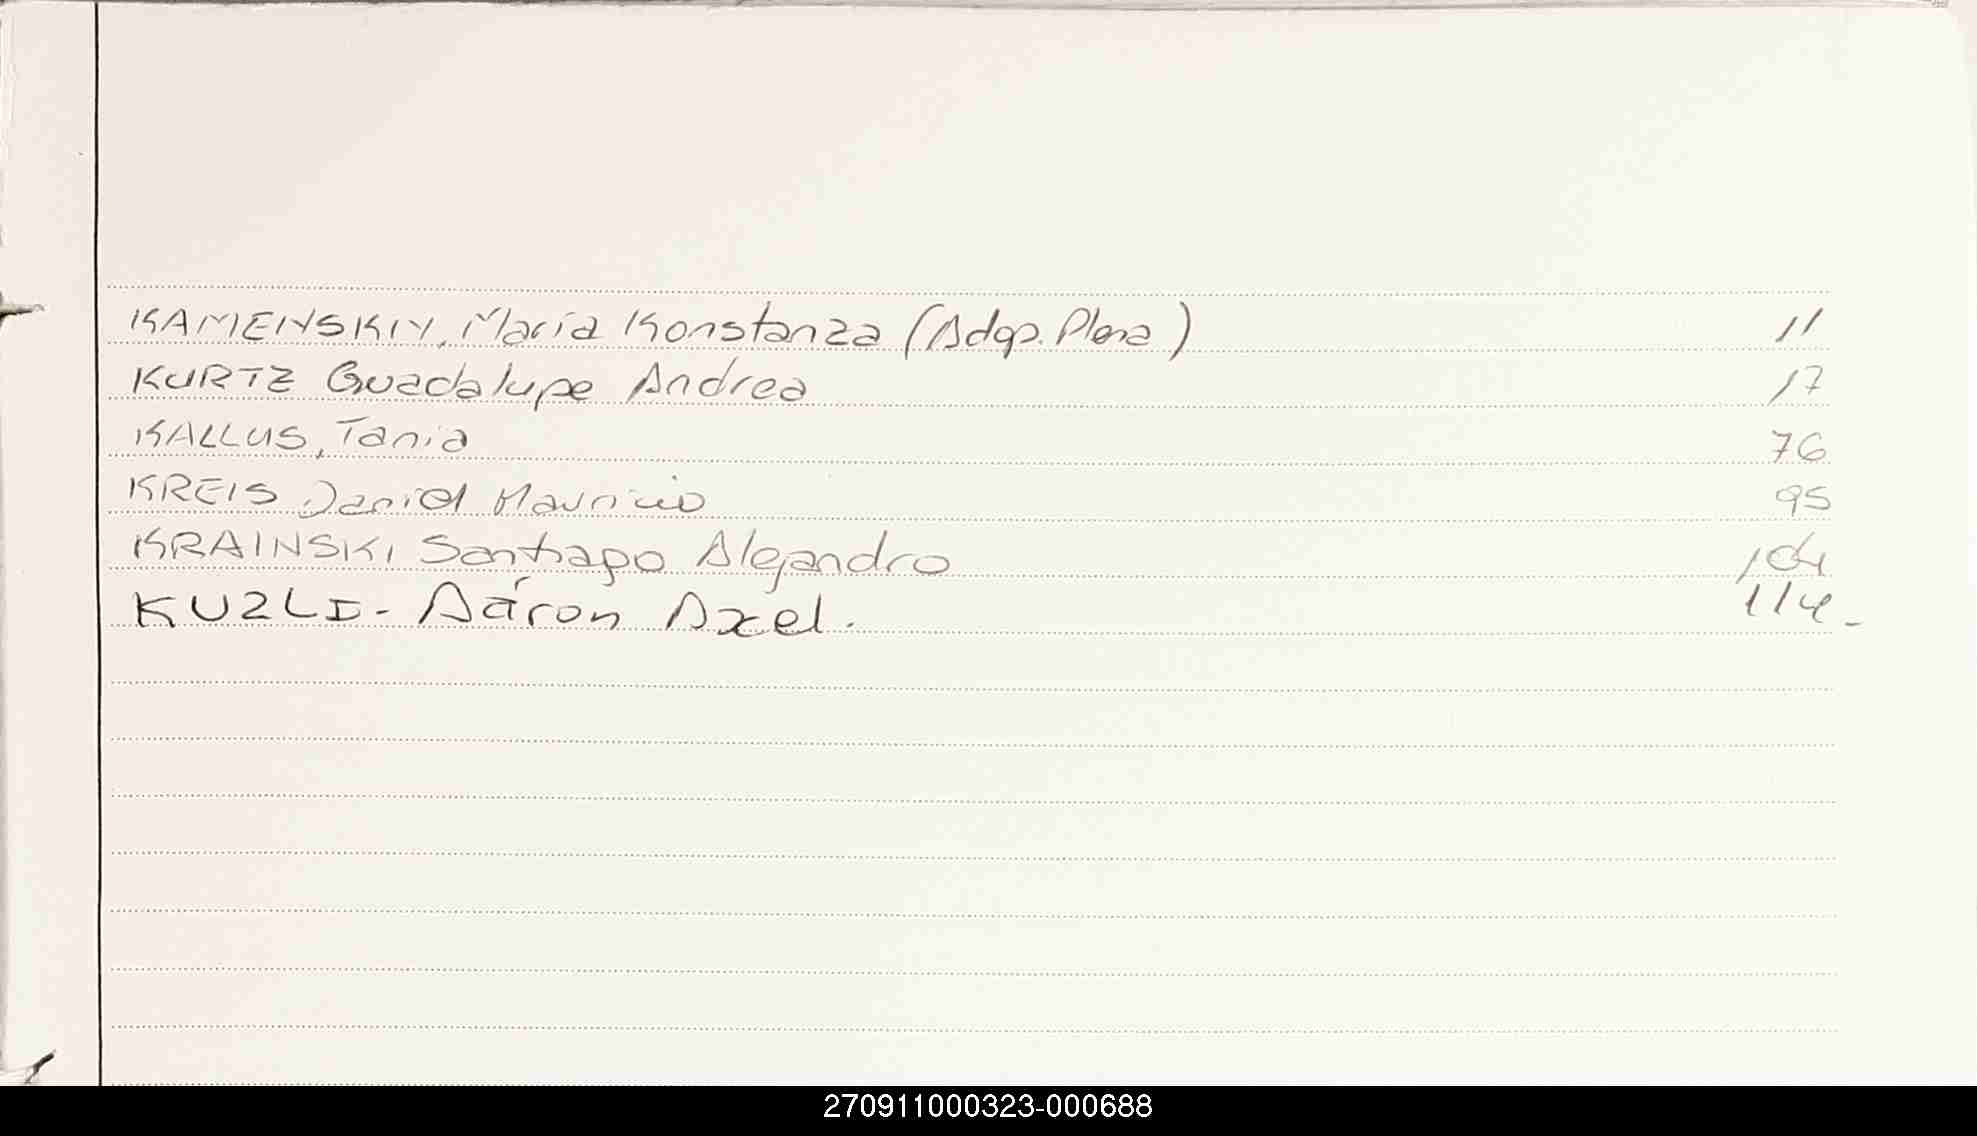 KAMENSKIY, María Konstanza (Adop. Plena) 11
KURTZ Guadalupe Andrea 17
KALLUS, Tania 76
KREIS Daniel Mauricio 95
KRAINSKI Santiago Alejandro 104
KUZLI - Aáron Axel. 114.-
270911000323-000688